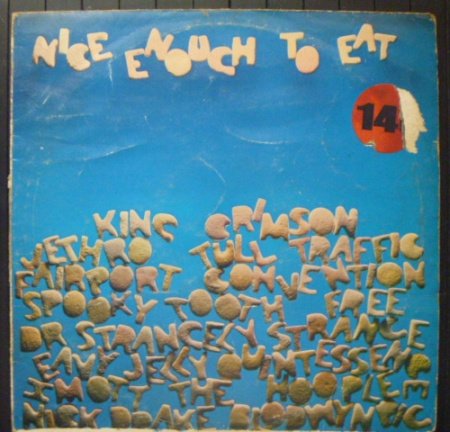 NICE ENOUGH TO EAT
14
KING CRIMSON
JETHRO TULL TRAFFIC
FAIRPORT CONVENTION
SPOOKY TOOTH FREE
DR STRANGELY STRANGE
QUINTESSENCE
MOTT THE HOOPLE
NICK DRAKE